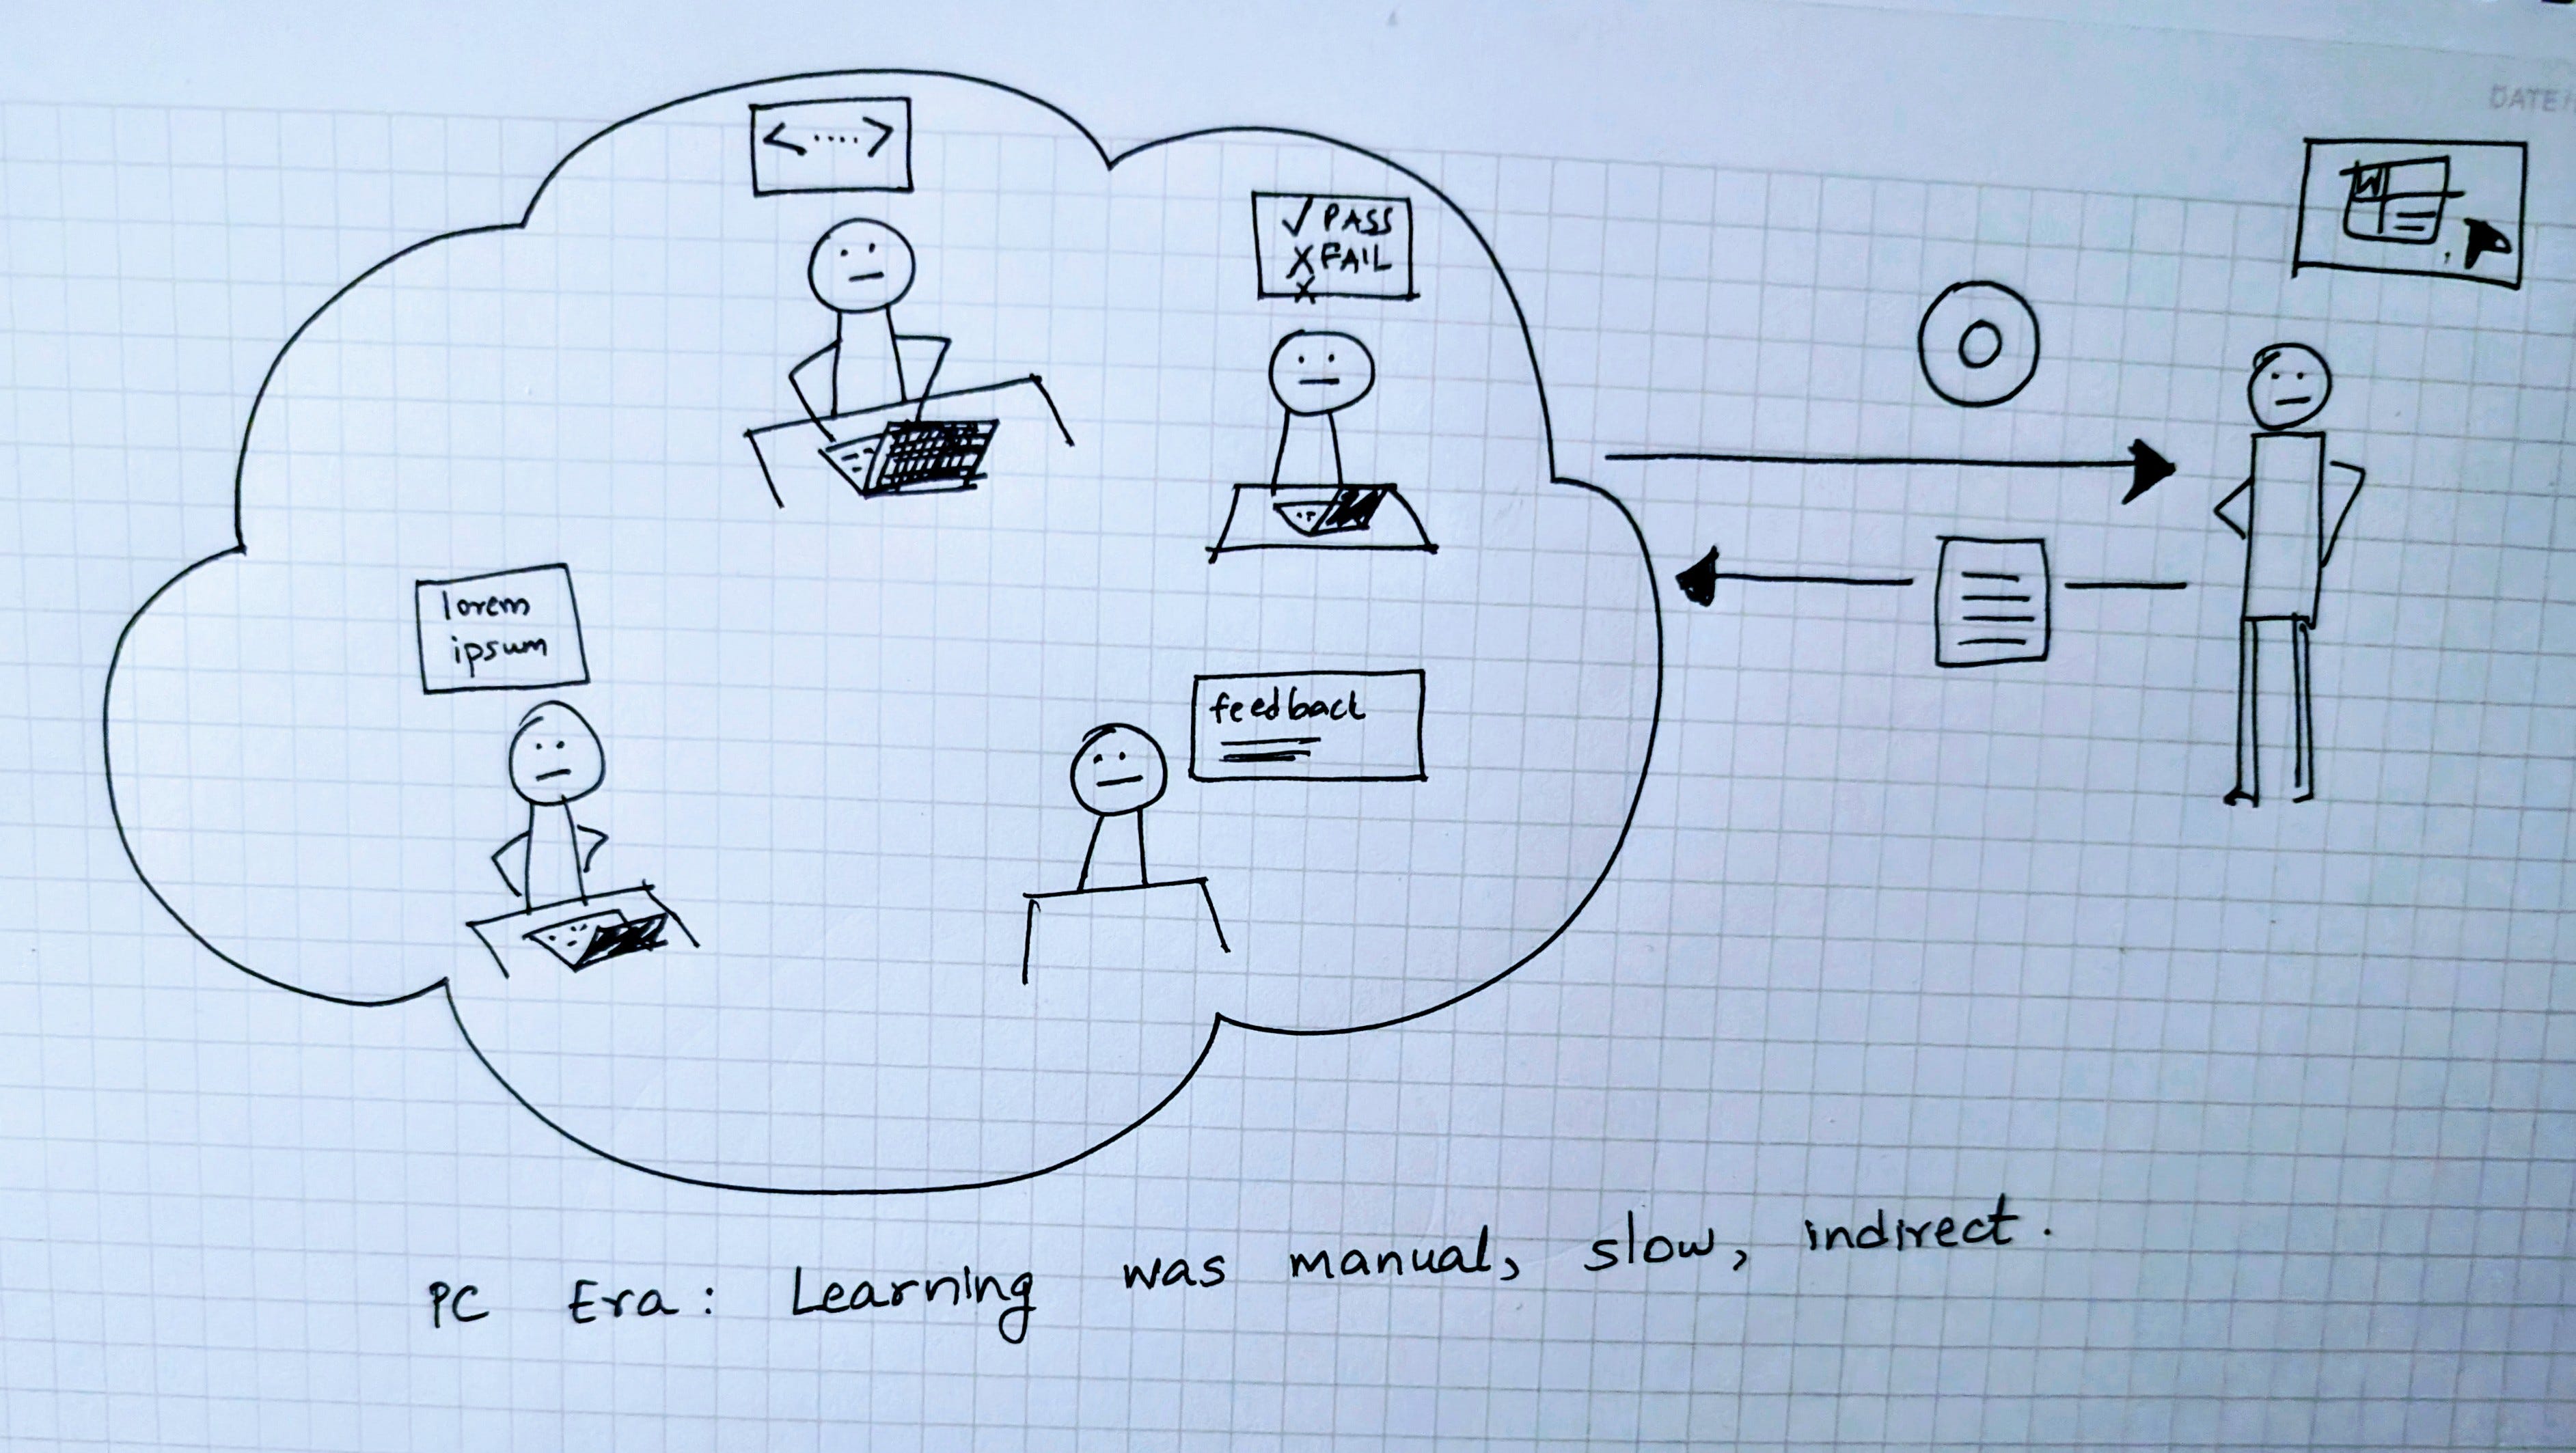 DATE
<....>
✓ PASS
X FAIL
X
W
lorem
ipsum
feedback
PC Era: Learning was manual, slow, indirect.